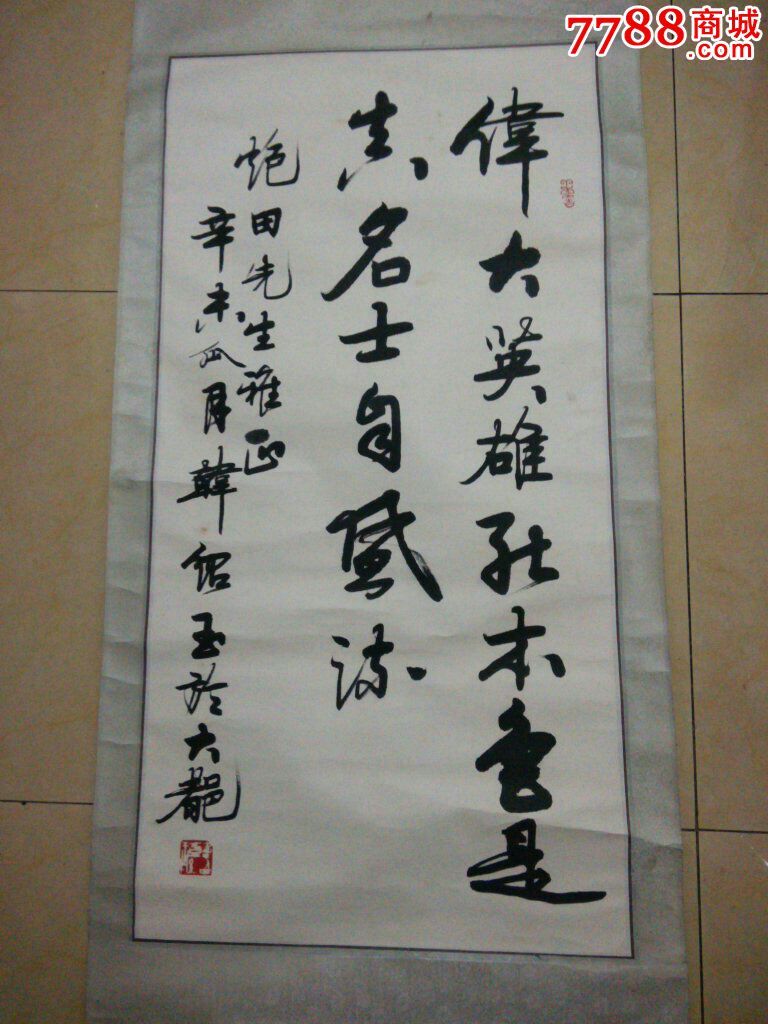 7788商城
.com
偉大英雄能本色是
真名士自風流
炮田先生雅正
辛未瓜月韓紹玉於大都